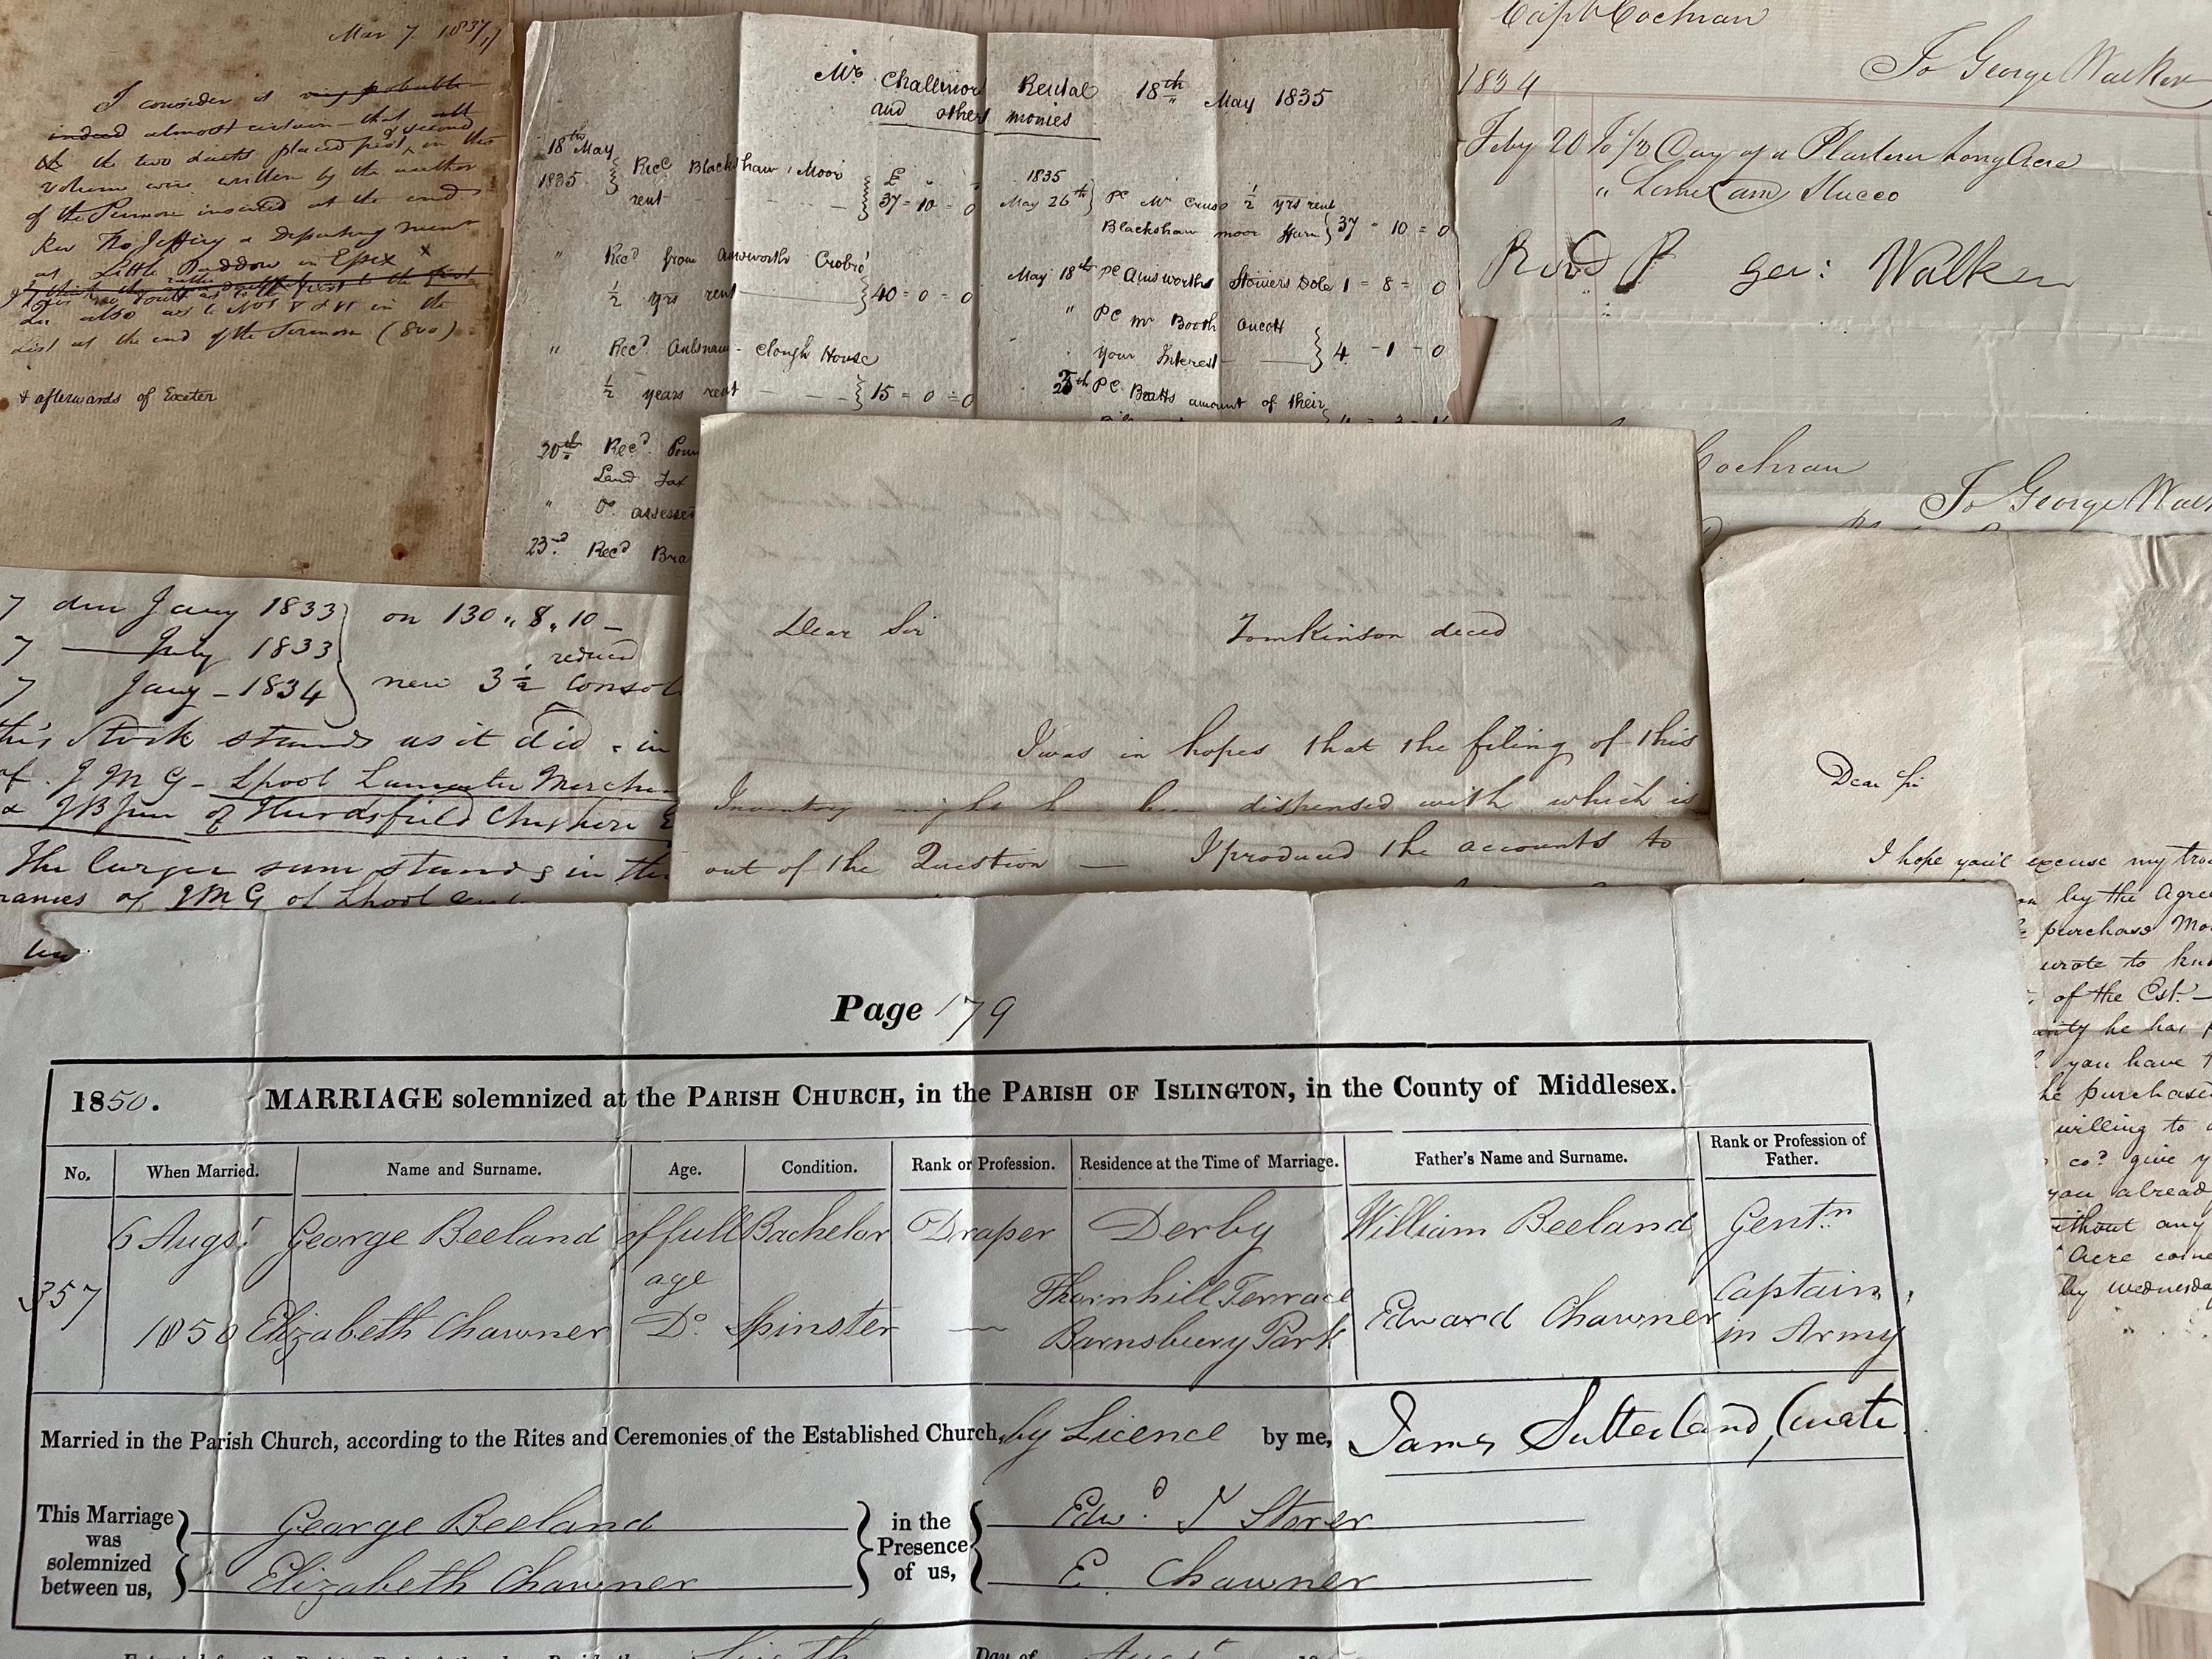 Mar 7. 1837
I consider it very probable
indeed almost certain that
the two placed first & second in this
volume were written by the author
of the Sermon inserted at the end
Rev Thos Jeffery a Dissenting
at Little Baddow in Essex x
as to Nos V & VI in the
list at the end of the Sermon (800)
x afterwards of Exeter
Mrs. Challinor Rental 18th May 1835
and other monies
18th May
1835. } Recd. Blackshaw Moor
rent £ 37 = 10 = 0
" Recd. from Ainsworth
½ yrs rent 40 = 0 = 0
" Recd. - Clough House
½ years rent 15 = 0 = 0
20th Recd.
Land Tax
" Do. assessed
23rd Recd Bra
1835
May 26th } pd. Mr Cruso ½ yrs rent
Blackshaw moor } 37 - 10 = 0
May 18th pd. Ainsworths Dole 1 = 8 = 0
" pd. Mr Booth
your Interest } 4 - 1 - 0
25th pd. amount of their
Capt Cochran
To George Walker
1834
Feby 20 To ½ Day of a Plasterer Long Acre
" Stucco
Recd Geo: Walker
Cochran
To George Walk
7 due Jany 1833
7 — July 1833
7 Jany - 1834
on 130 " 8 " 10 -
reduced
new 3½ Consol
this Stock stands as it did - in
of J M G - Lpool Merchan
& JB Jun of Hurdsfield Cheshire
The larger sum stands in the
names of J M G of Lpool
Dear Sir
Tomkinson deced
I was in hopes that the filing of this
Inventory might have been dispensed with which is
out of the Question — I produced the accounts to
Dear Sir
I hope you'l excuse my trou
by the Agree
purchase Mo
wrote to kn
of the Est. —
he has
you have
he purchase
willing to
cod give y
you alread
ithout any
Acre
by wednesda
Page 179
1850. MARRIAGE solemnized at the PARISH CHURCH, in the PARISH OF ISLINGTON, in the County of Middlesex.
No. When Married. Name and Surname. Age. Condition. Rank or Profession. Residence at the Time of Marriage. Father's Name and Surname. Rank or Profession of Father.
357
6 Augst George Beeland of full age Bachelor Draper Derby William Beeland Gentn
1850 Elizabeth Chawner Do. Spinster — Thornhill Terrace Barnsbury Park Edward Chawner Captain in Army
Married in the Parish Church, according to the Rites and Ceremonies of the Established Church, by Licence by me, James Sutterland, Curate
This Marriage was solemnized between us,
George Beeland
Elizabeth Chawner
in the Presence of us,
Edwd. J Storer
E. Chawner
Day of